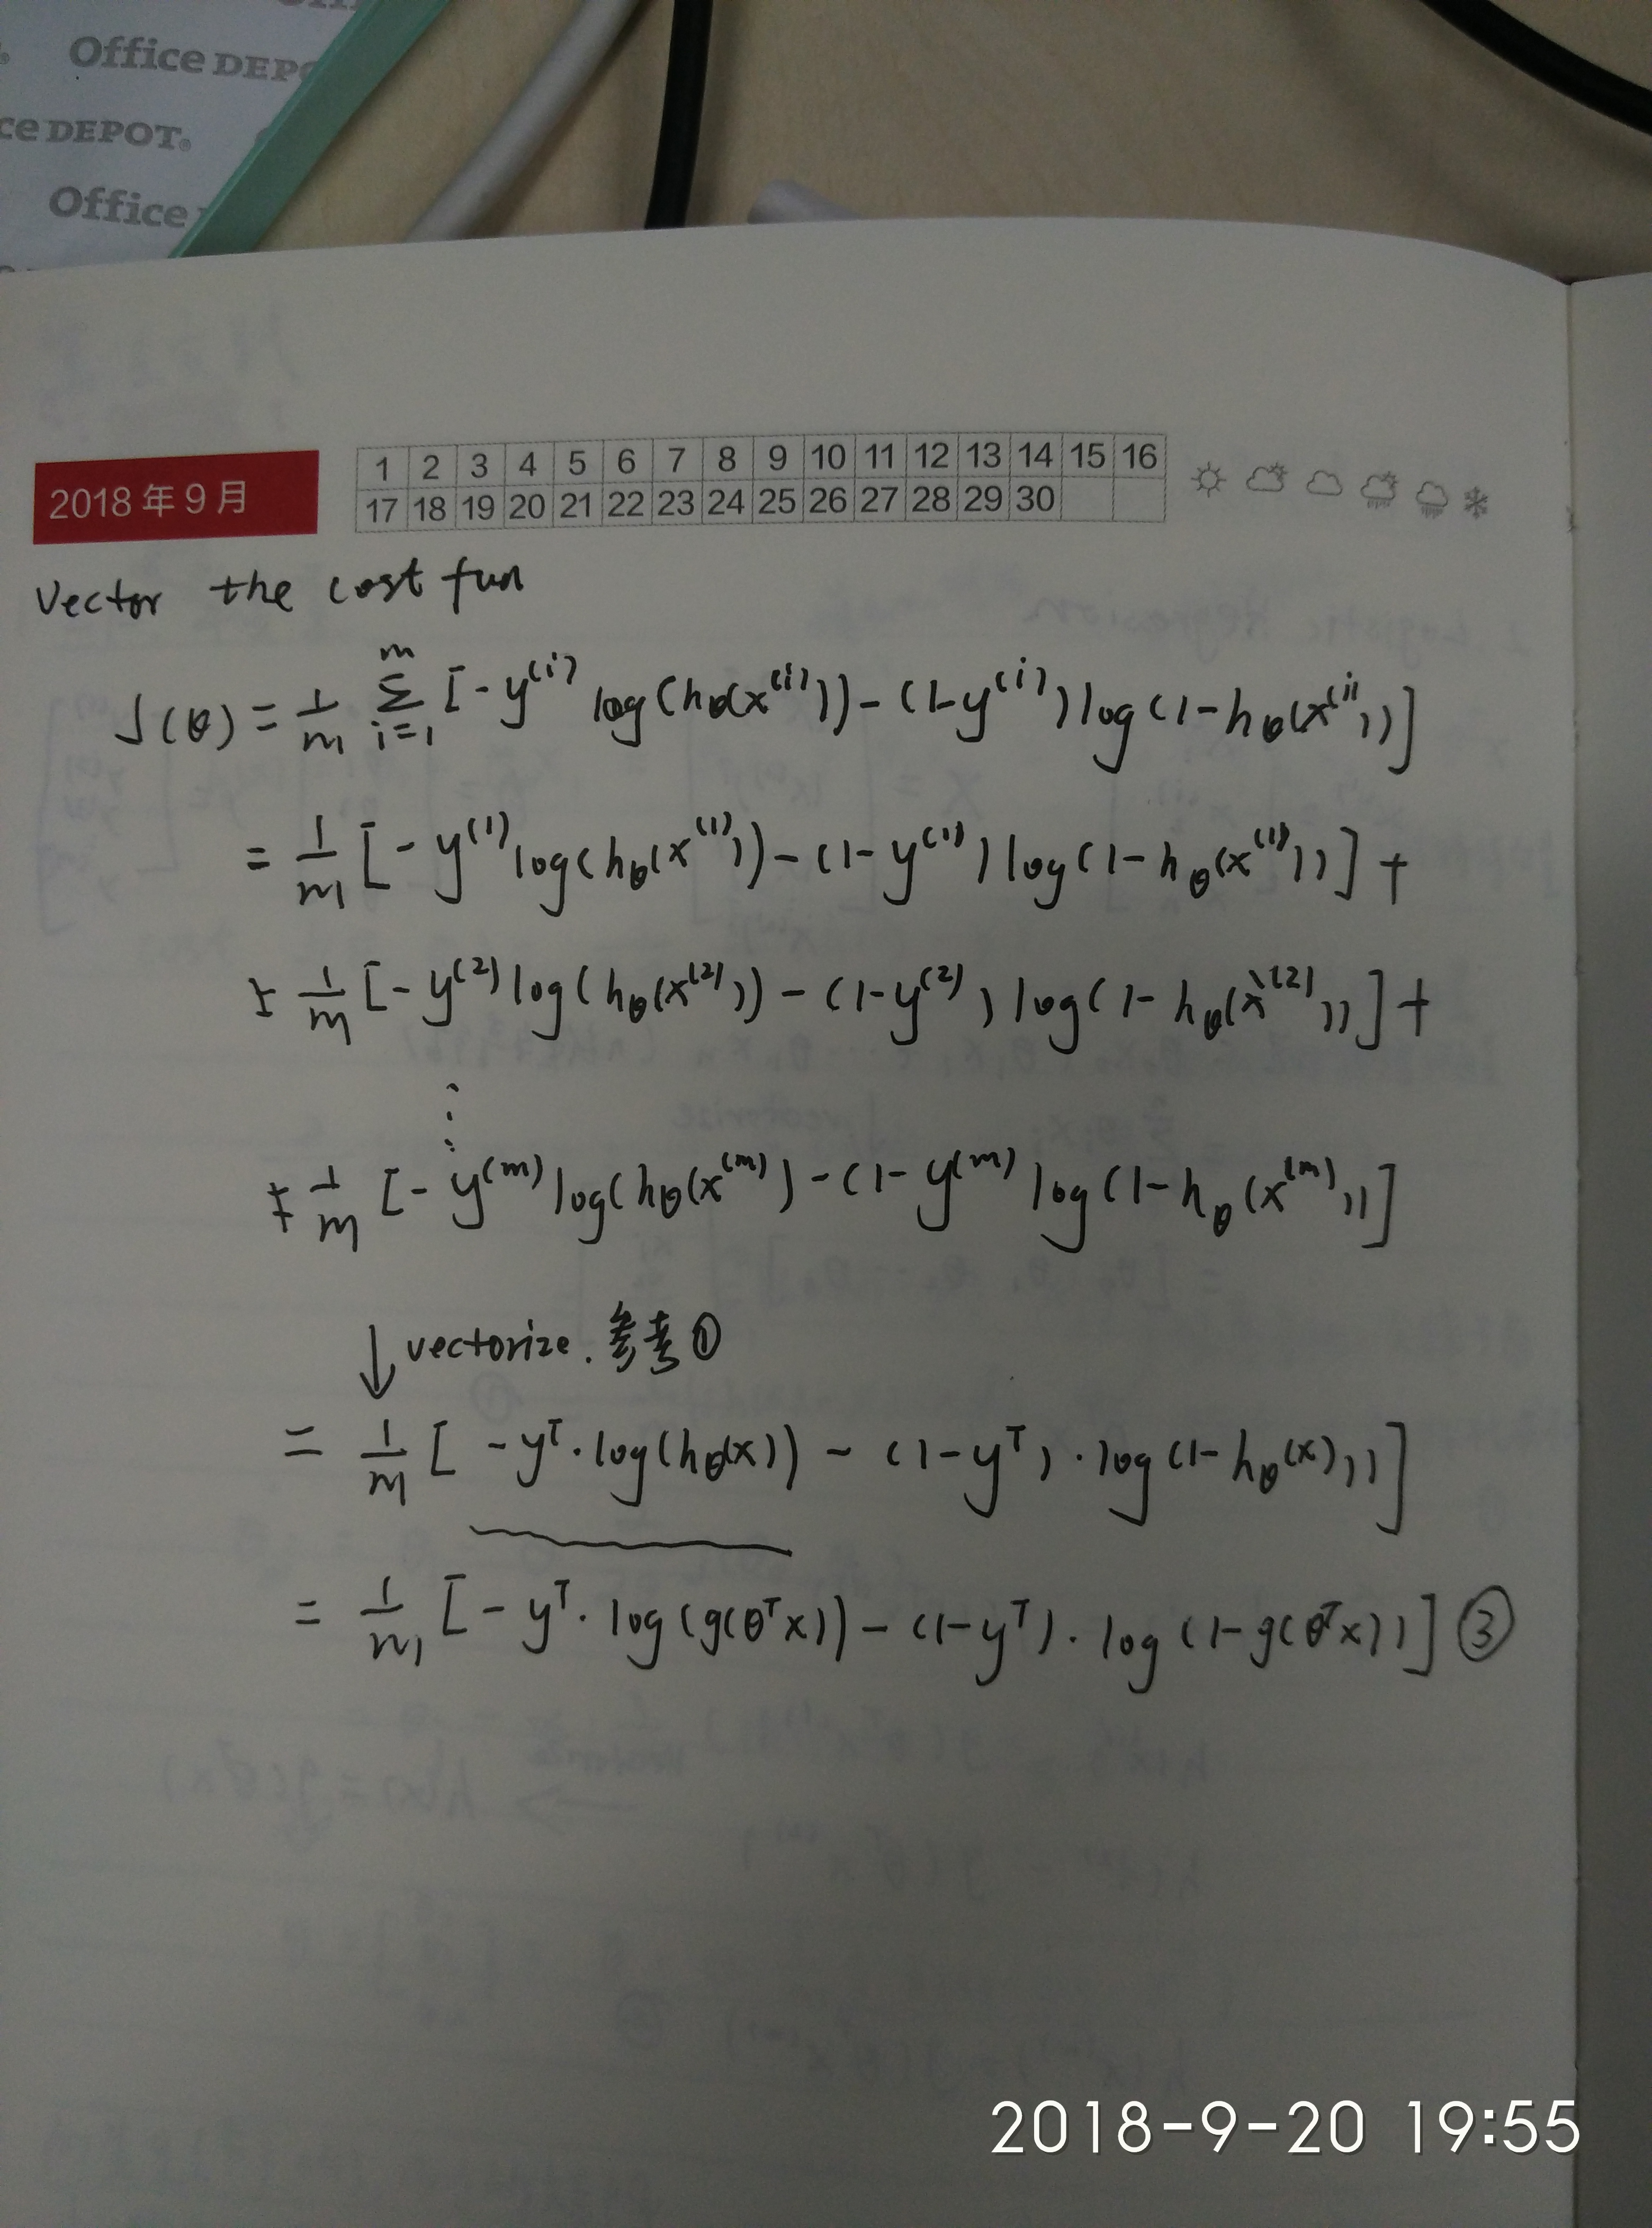 Office DEPO
ce DEPOT®
Office
2018年9月
1 2 3 4 5 6 7 8 9 10 11 12 13 14 15 16
17 18 19 20 21 22 23 24 25 26 27 28 29 30
Vector the cost fun
J(θ) = 1/m Σ_{i=1}^{m} [-y^{(i)} log(hθ(x^{(i)})) - (1-y^{(i)}) log(1-hθ(x^{(i)}))]
= 1/m [-y^{(1)} log(hθ(x^{(1)})) - (1-y^{(1)}) log(1-hθ(x^{(1)}))] +
+ 1/m [-y^{(2)} log(hθ(x^{(2)})) - (1-y^{(2)}) log(1-hθ(x^{(2)}))] +
⋮
+ 1/m [-y^{(m)} log(hθ(x^{(m)}) - (1-y^{(m)} log(1-hθ(x^{(m)}))]
↓ vectorize. 参考①
= 1/m [-y^T · log(hθ(x)) - (1-y^T) · log(1-hθ(x)))]
= 1/m [-y^T · log(g(θ^T x)) - (1-y^T) · log(1-g(θ^T x))] ③
2018-9-20 19:55